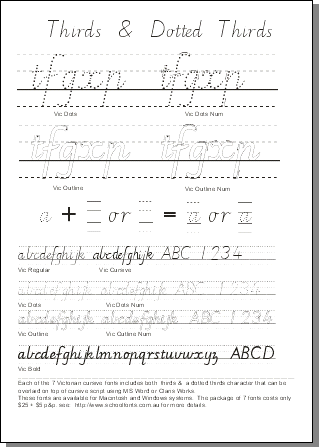 Thirds & Dotted Thirds
tfgxp tfgxp
Vic Dots Vic Dots Num
tfgxp tfgxp
Vic Outline Vic Outline Num
a + or = a or a
abcdefghijk abcdefghijk ABC 1234
Vic Regular Vic Cursive
abcdefghijk abcdefghijk ABC 1234
Vic Dots Vic Dots Num
abcdefghijk abcdefghijk ABC 1234
Vic Outline Vic Outline Num
abcdefghijklmnopqrstuvwxyz ABCD
Vic Bold
Each of the 7 Victorian cursive fonts includes both thirds & a dotted thirds character that can be
overlaid on top of cursive script using MS Word or Claris Works.
These fonts are available for Macintosh and Windows systems. The package of 7 fonts costs only
$25 + $5 p&p. see: http://www.schoolfonts.com.au for more details.